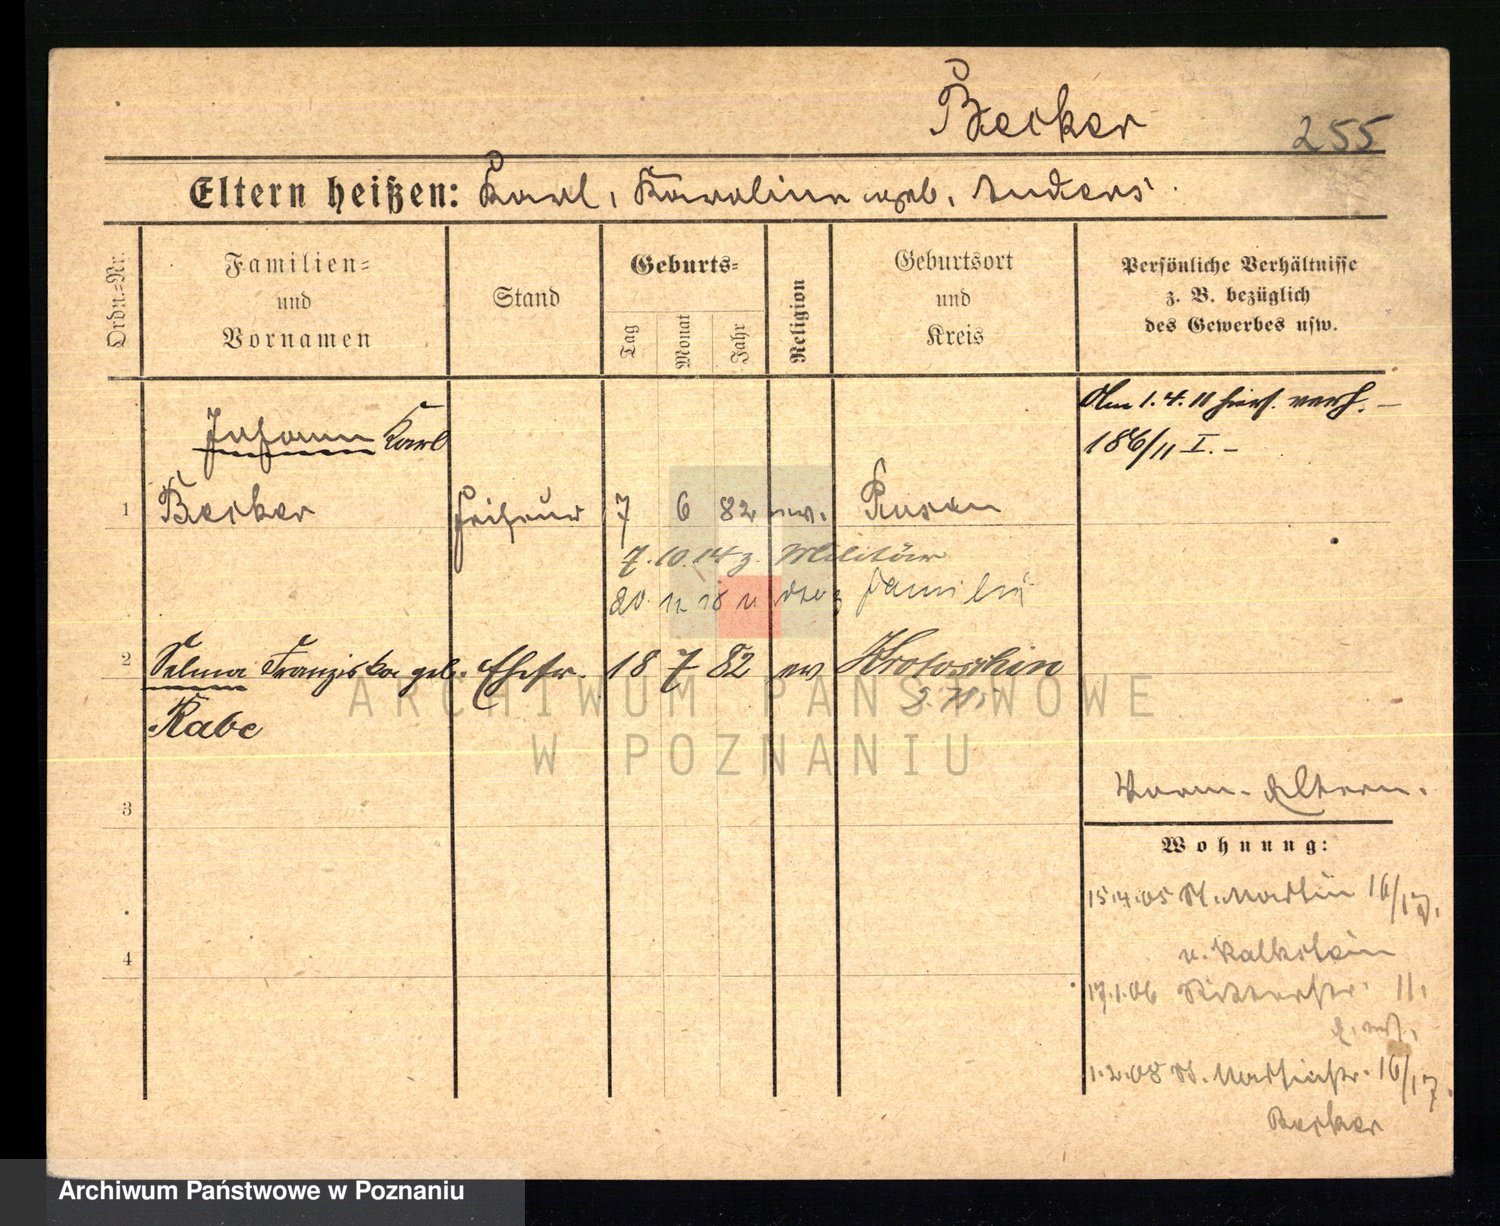 Becker
255
Eltern heißen: Karl, Karoline geb. Anders.
Ordn.-Nr.
Familien-
und
Vornamen
Stand
Geburts-
Tag
Monat
Jahr
Religion
Geburtsort
und
Kreis
Persönliche Verhältnisse
z. B. bezüglich
des Gewerbes usw.
Am 1.4.11 hiers. verh. –
186/11 I. –
Johann Karl
1 Becker Friseur 7 6 82 ev. Posen
7.10.14 z. Militär
20 12 18 Familie
2 Selma Franziska geb. Ehefr. 18 7 82 ev Krotoschin
Rabe
ARCHIWUM PAŃSTWOWE
W POZNANIU
3
Vorm. Eltern.
Wohnung:
15.4.05 St. Martin 16/17.
v. Kalkstein
4
17.1.06 Ritterstr. 11.
1.2.08 St. Martinstr. 16/17.
Becker
Archiwum Państwowe w Poznaniu